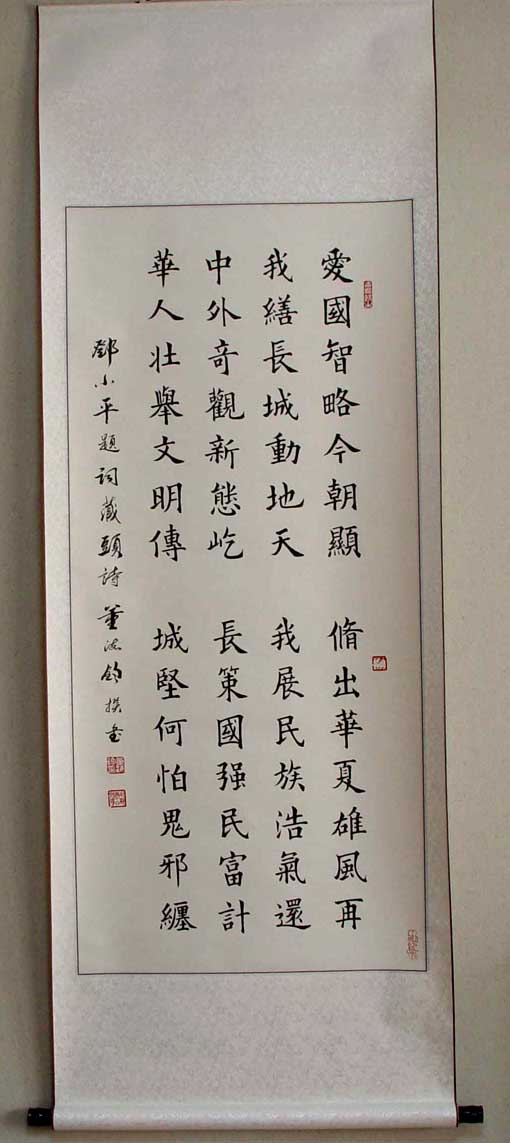 愛國智略今朝顯 脩出華夏雄風再
我繕長城動地天 我展民族浩氣還
中外奇觀新態屹 長策國强民富計
華人壯舉文明傳 城堅何怕鬼邪纏
鄧小平題詞藏頭詩 董